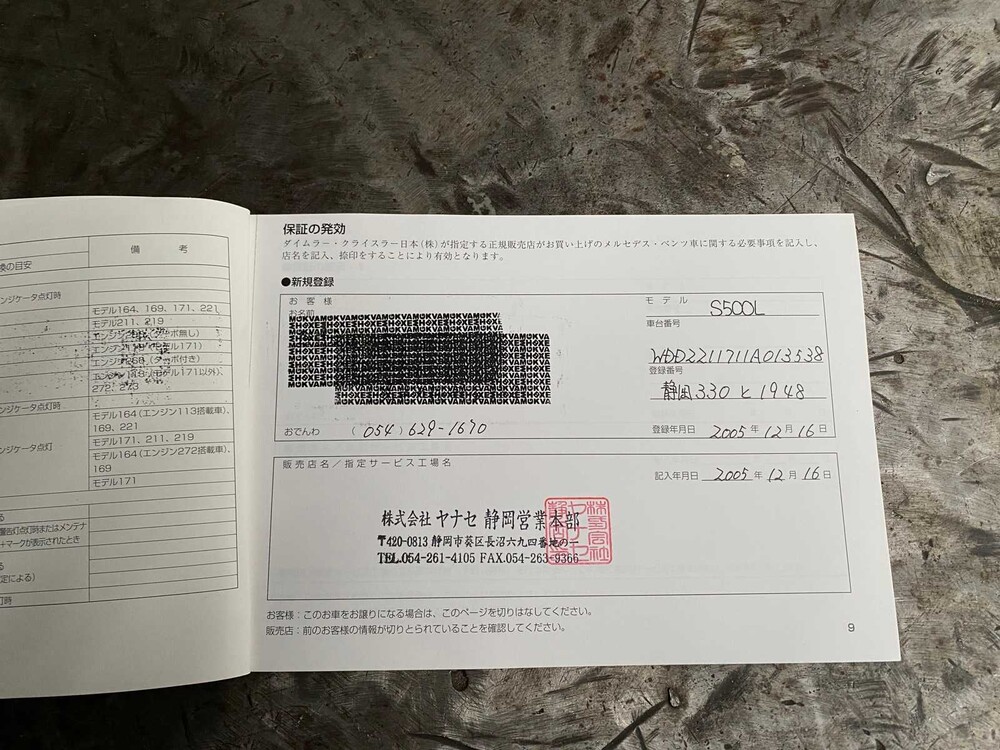 備 考
換の目安
ンジケータ点灯時
モデル164、169、171、221
モデル211、219
モデル171)
(ターボ付き)
モデル171以外)、
272、273
ンジケータ点灯時
モデル164(エンジン113搭載車)、
169、221
ンジケータ点灯
モデル171、211、219
モデル164(エンジン272搭載車)、
169
モデル171
る
警告灯点灯時またはメンテナ
+マークが表示されたとき
る
定による)
灯時
保証の発効
ダイムラー・クライスラー日本(株)が指定する正規販売店がお買い上げのメルセデス・ベンツ車に関する必要事項を記入し、
店名を記入、捺印をすることにより有効となります。
●新規登録
お客様
お名前
モデル S500L
車台番号
WDD2211711A013538
登録番号
静岡 330 と 1948
おでんわ (054) 629-1670
登録年月日 2005年 12月 16日
販売店名/指定サービス工場名
記入年月日 2005年 12月 16日
株式会社 ヤナセ 静岡営業本部
〒420-0813 静岡市葵区長沼六九四番地の一
TEL.054-261-4105 FAX.054-263-9366
お客様:このお車をお譲りになる場合は、このページを切りはなしてください。
販売店:前のお客様の情報が切りとられていることを確認してください。
9